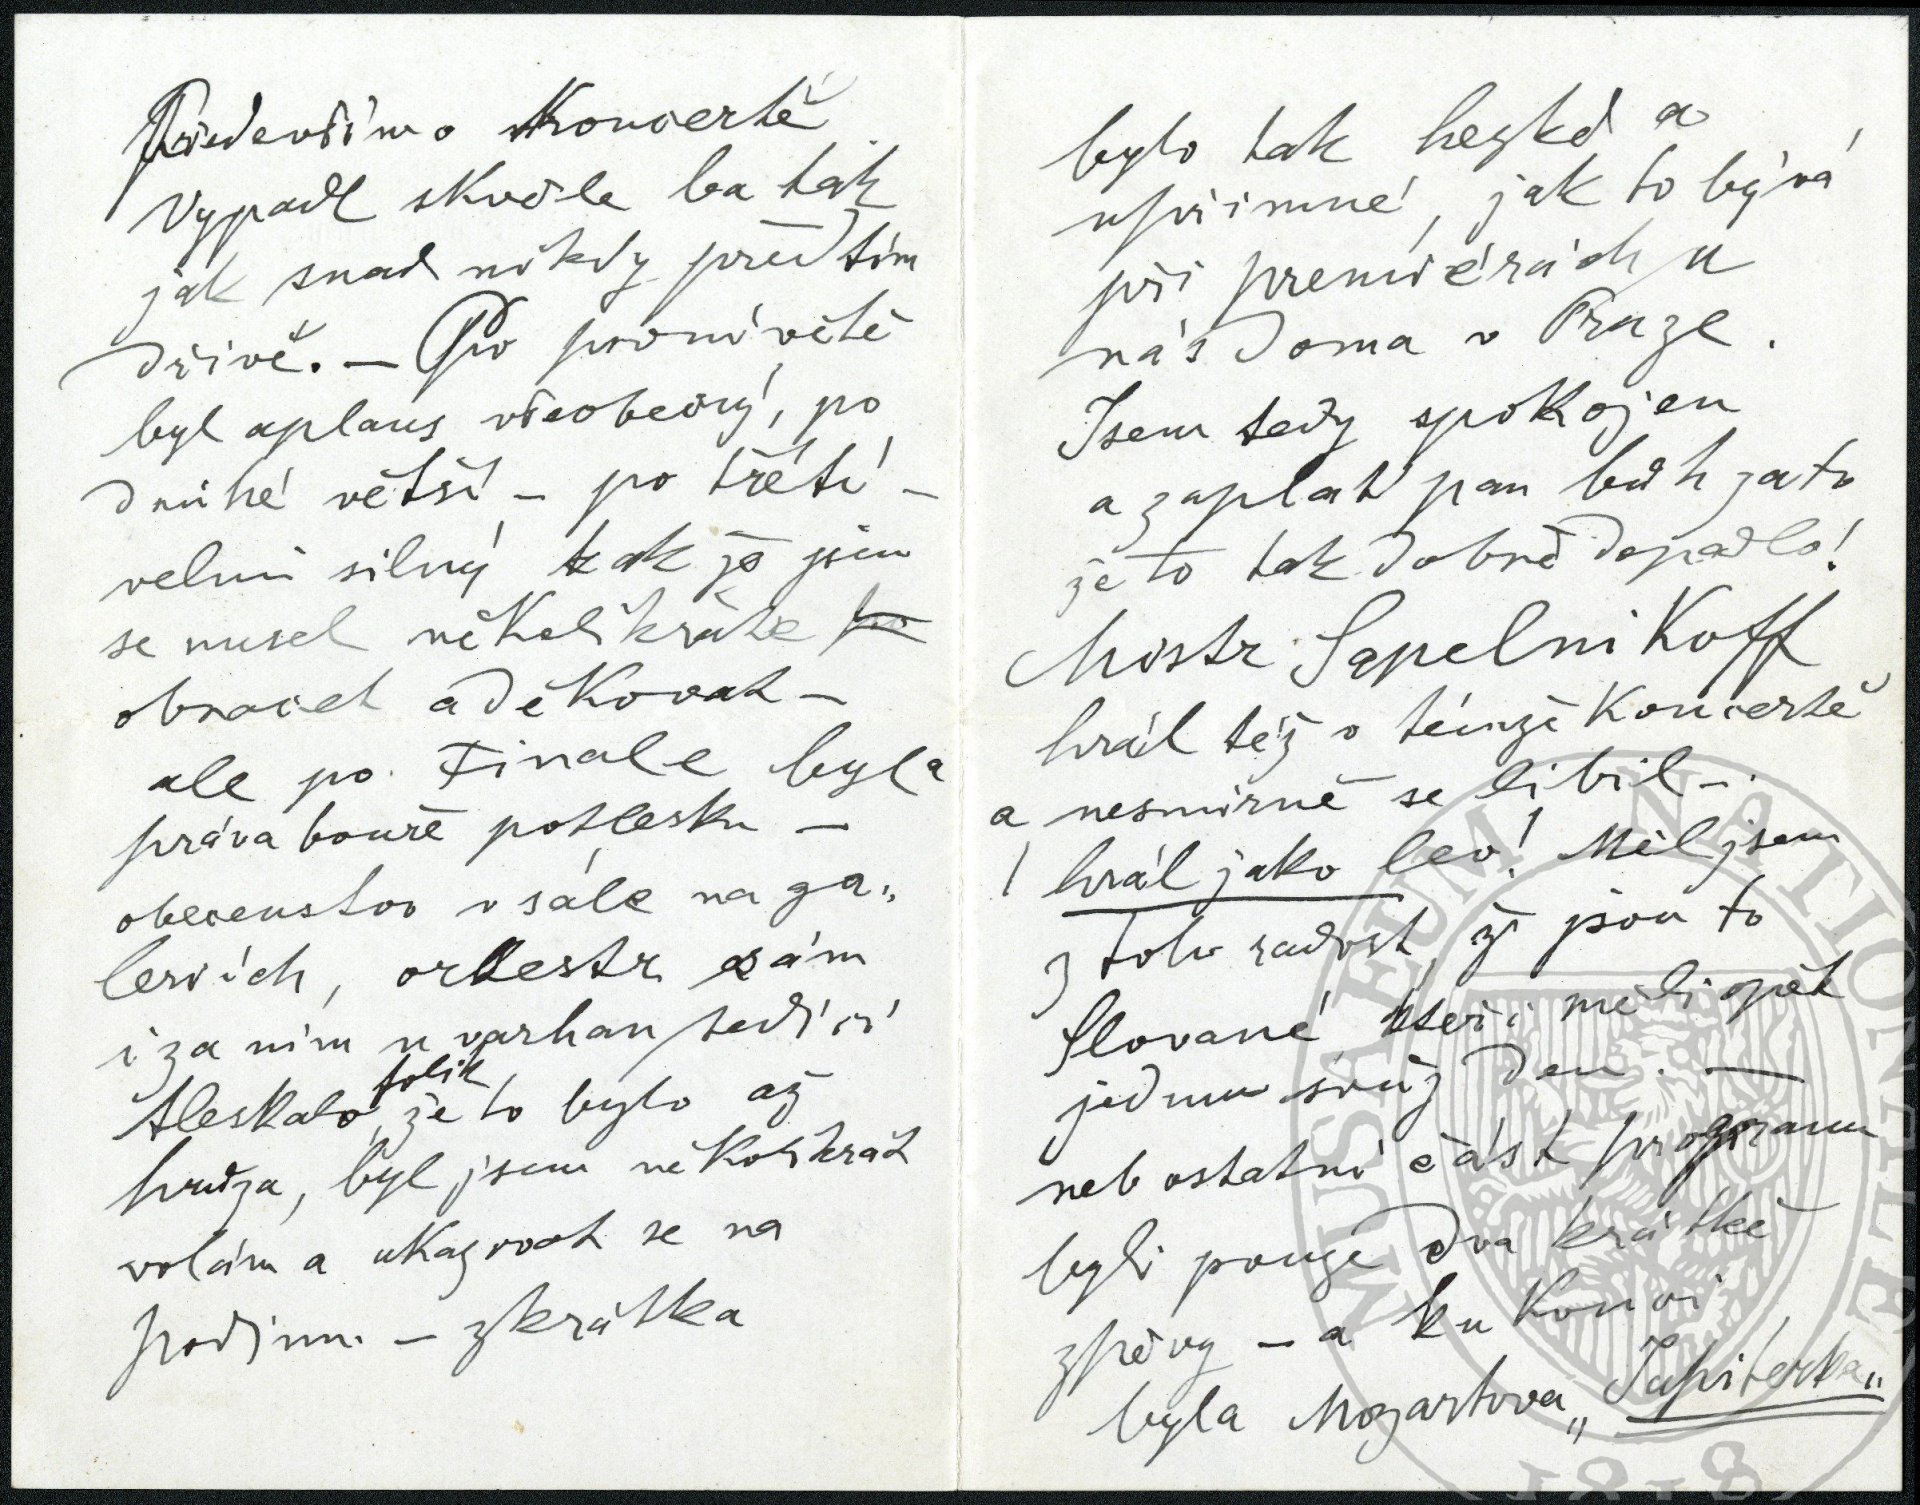 Předevšímo Koncertě
Vypadl skvěle ba tak
jak snad nikdy před tím
dřivě. — Po první větě
byl aplaus všeobecný, po
druhé větší — po třetí —
velmi silný tak že jsem
se musel několikráte
obracet a děkovat —
ale po Finale byla
práva bouře potlesku —
obecenstvo v sále na ga„
leriích, orkestr sám
i za ním u varhan sedící
tleskalo tolik, že to bylo až
hrůza, byl jsem několikrát
volám a ukazovat se na
podium — zkrátka
bylo tak hezké a
upřimné, jak to bývá
při premiérách u
nás doma v Praze.
Jsem tedy spokojen
a zaplať pan bůh za to
že to tak dobře dopadlo!
Mistr Sapelnikoff
hrál též v témže Koncertě
a nesmírně se líbil —
! hrál jako lev! Měl jsem
z toho radost, že jsou to
Slované, kteří měli opět
jednu svůj den. —
neb ostatní část programu
byli pouze dva krátké
zpěvy — a ku konci
byla Mozartova „Jupiterka„
MUSAEUM NATIONALE
1818